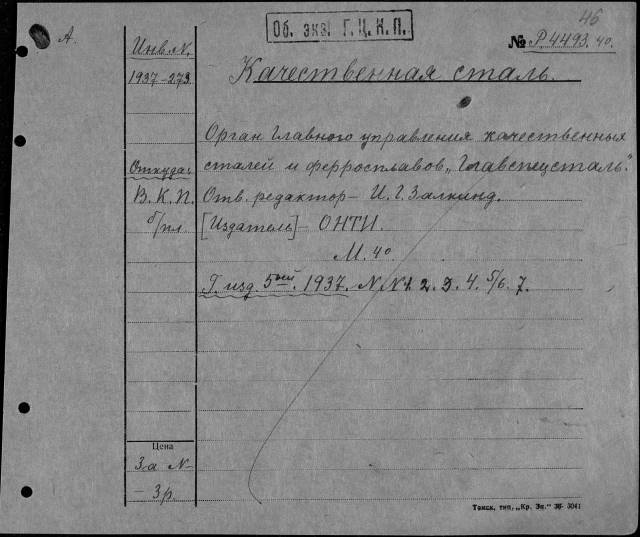 46
Об. экз. Г.Ц.К.П.
№ Р4493. 4º.
А.
Инв. N.
1937-273.
Качественная сталь.
Орган Главного управления качественных
Откуда: сталей и ферросплавов „Главспецсталь“.
В.К.П. Отв. редактор - И.Г. Залкинд.
б/пл. [Издатель] - ОНТИ.
М. 4º
Г. изд. 5ый. 1937. N N 1. 2. 3. 4. 5/6. 7.
Цена
За N-
- 3р.
Томск, тип. „Кр. Зн.“ 36- 5041